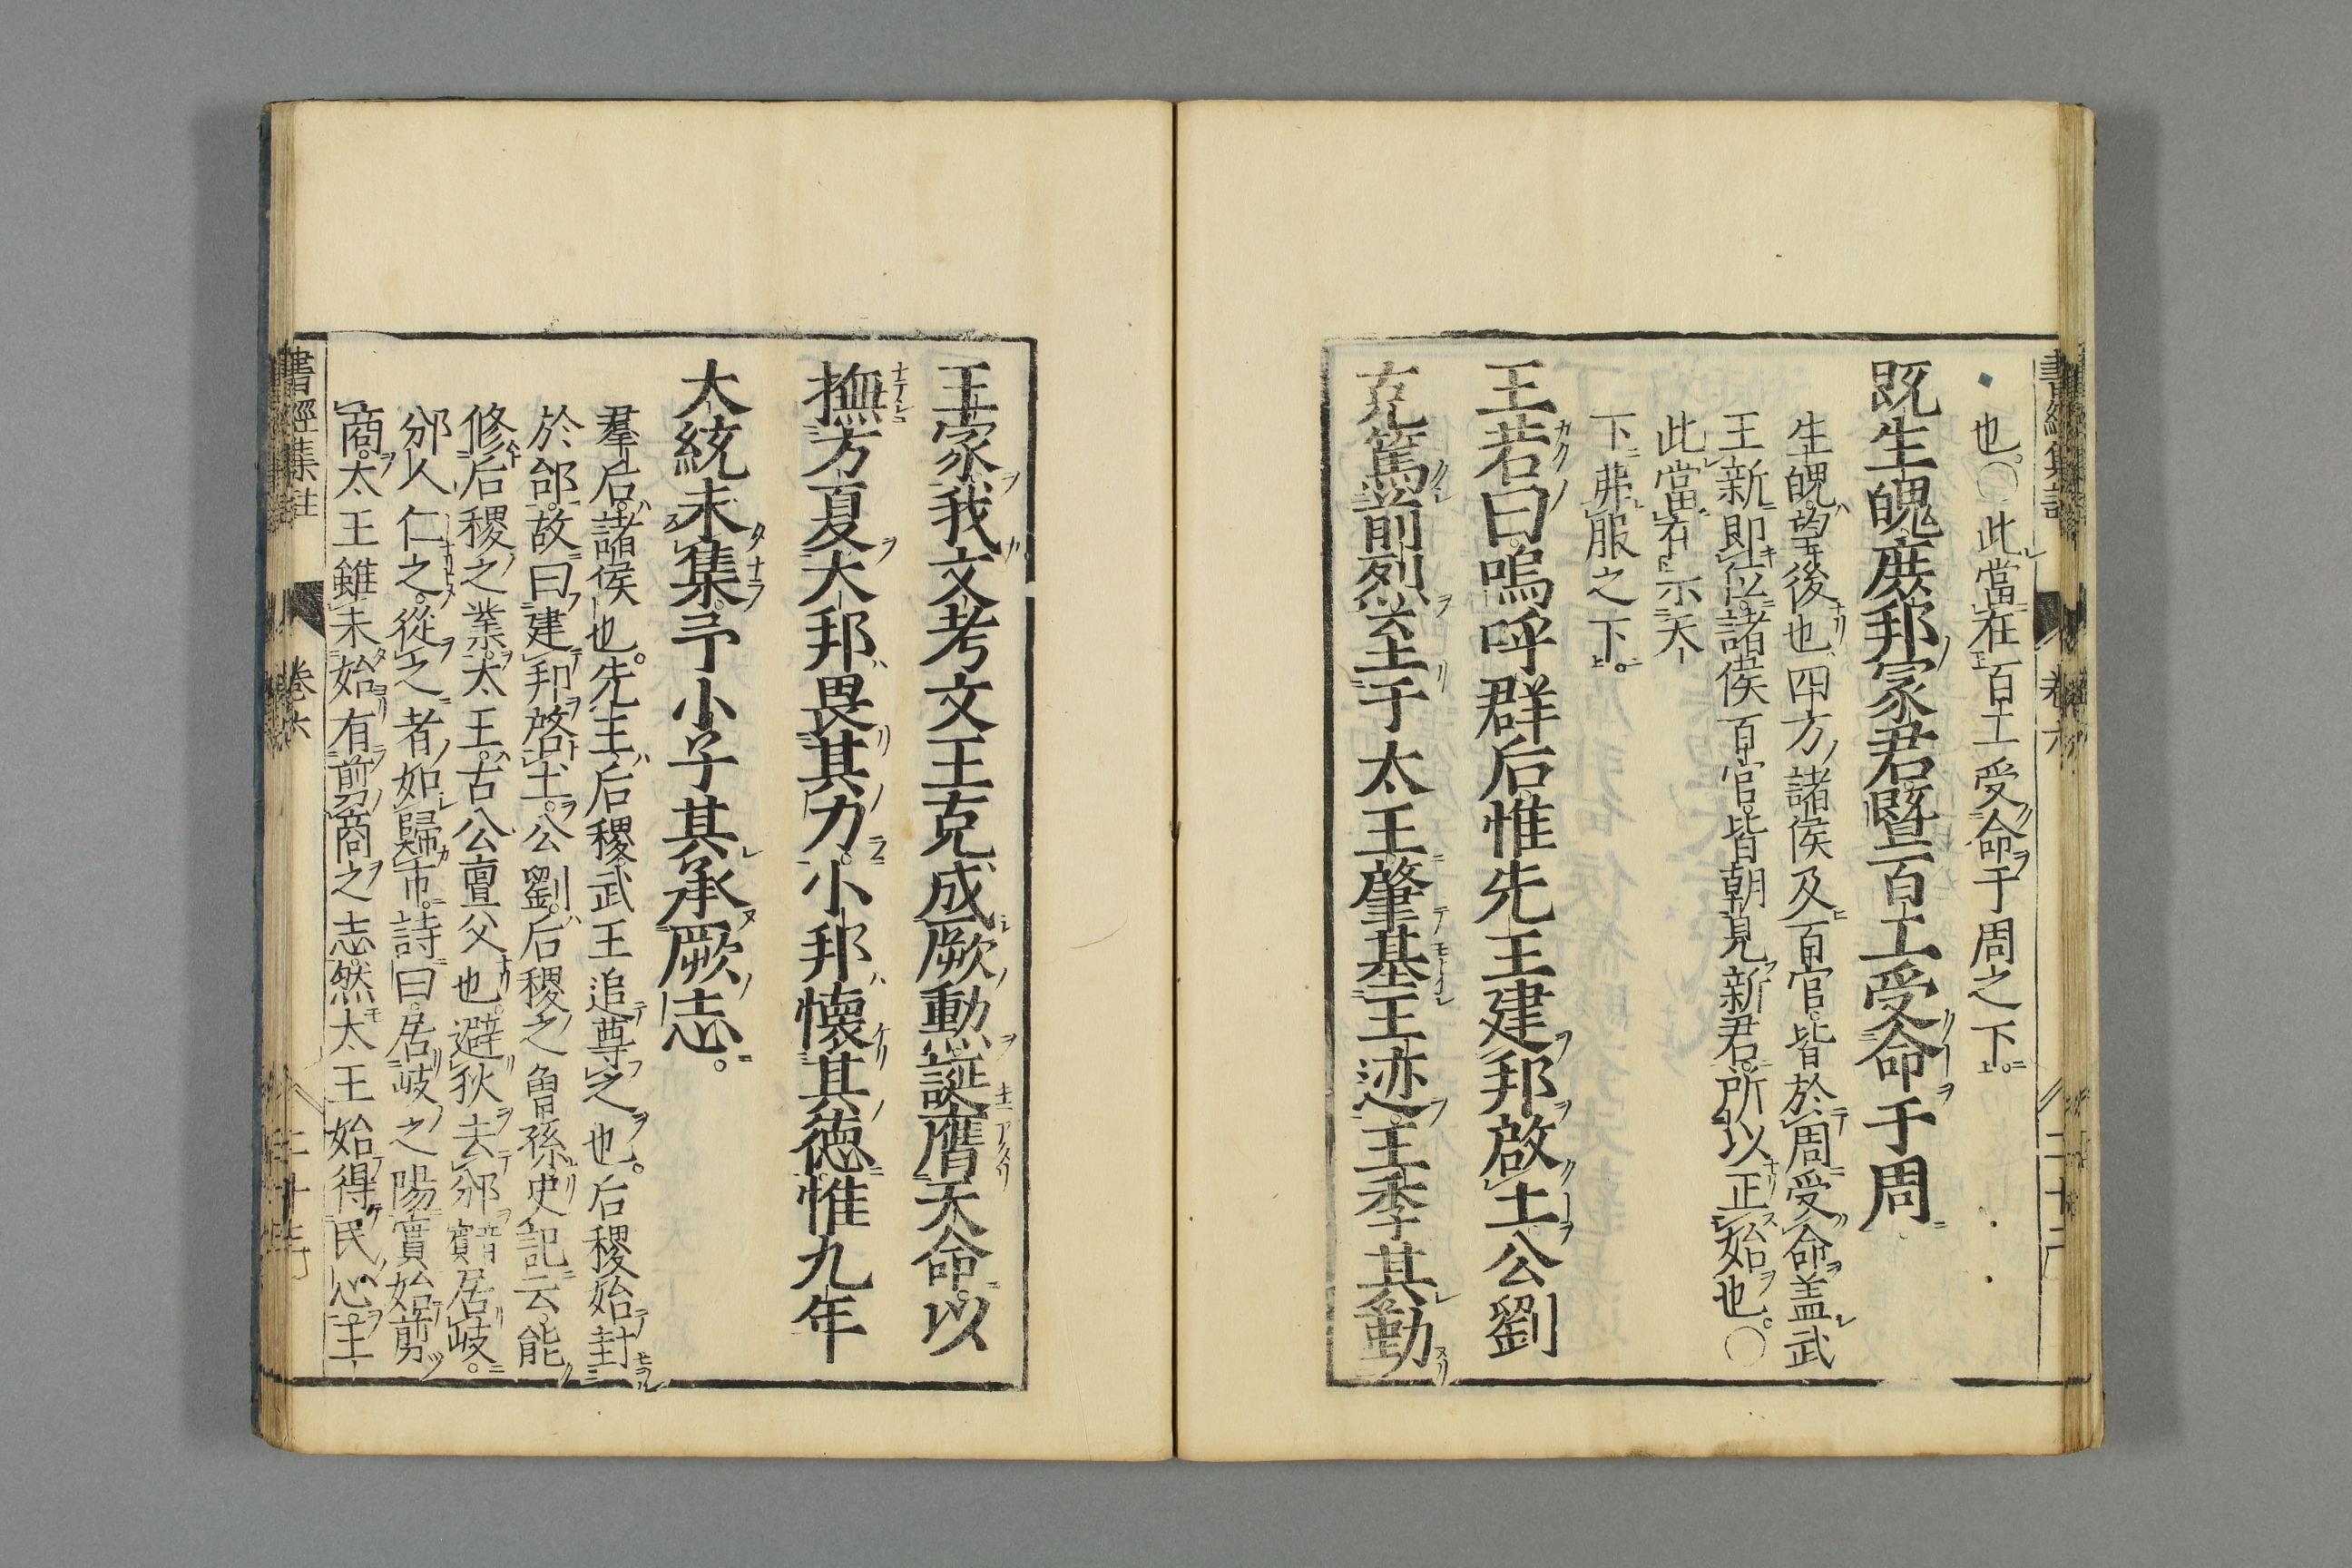 也○此當在百工受命于周之下
既生魄庶邦冢君曁百工受命于周
生魄望後也四方諸侯及百官皆於周受命蓋武
王新即位諸侯百官皆朝見新君所以正始也○
此當在示天
下弗服之下
王若曰嗚呼群后惟先王建邦啟土公劉
克篤前烈至于太王肇基王迹王季其勤
王家我文考文王克成厥勳誕膺天命以
撫方夏大邦畏其力小邦懷其德惟九年
大統未集予小子其承厥志
羣后諸侯也先王后稷武王追尊之也后稷始封
於邰故曰建邦啓土公劉后稷之曾孫史記云能
修后稷之業太王古公亶父也避狄去邠居岐
邠人仁之從之者如歸市詩曰居岐之陽實始剪
商太王雖未始有剪商之志然太王始得民心王
書經集註 卷六